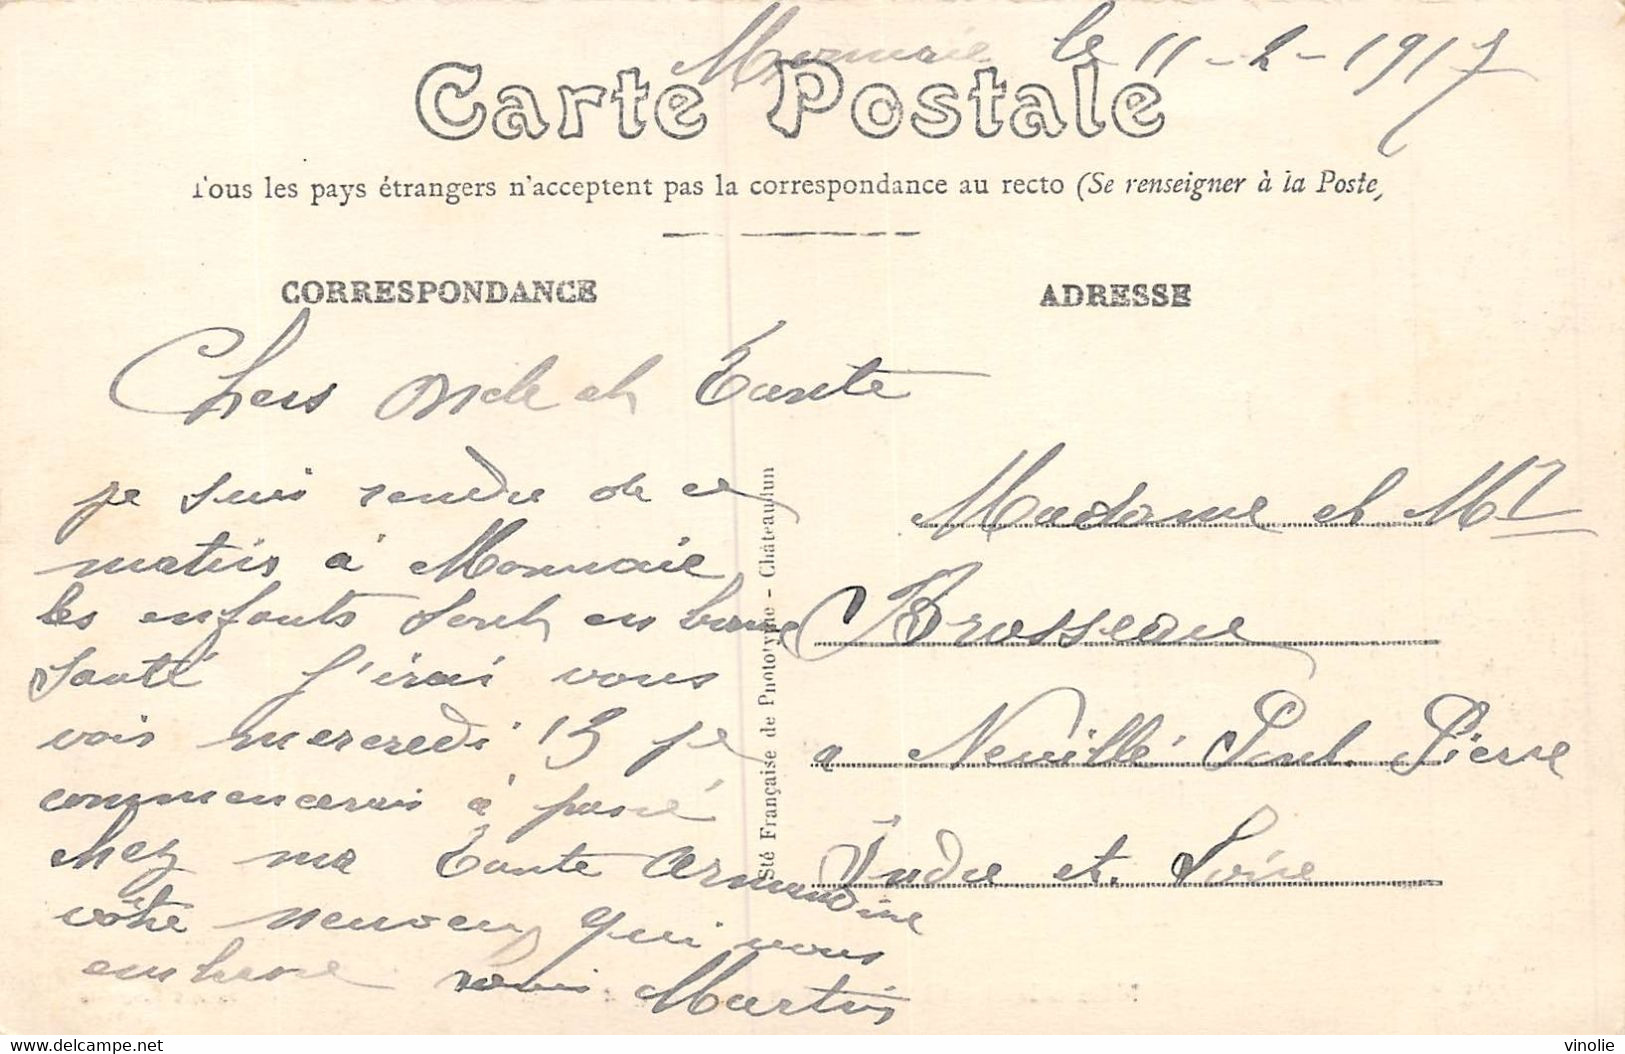 Monnaie le 11-2-1917
Carte Postale
Tous les pays étrangers n'acceptent pas la correspondance au recto (Se renseigner à la Poste)
CORRESPONDANCE
Chers Oncle et Tante
je suis rendu de ce
matin à Monnaie
les enfants sont en bonne
santé j'irai vous
vois mercredi 15 je
commencerais à passé
chez ma Tante Armandine
votre neuveu qui vous
embrasse Martin
Sté Française de Phototypie - Châteaudun
ADRESSE
Madame et Mr
Brosseau
a Neuillé Pont Pierre
Indre et Loire
www.delcampe.net
vinolie